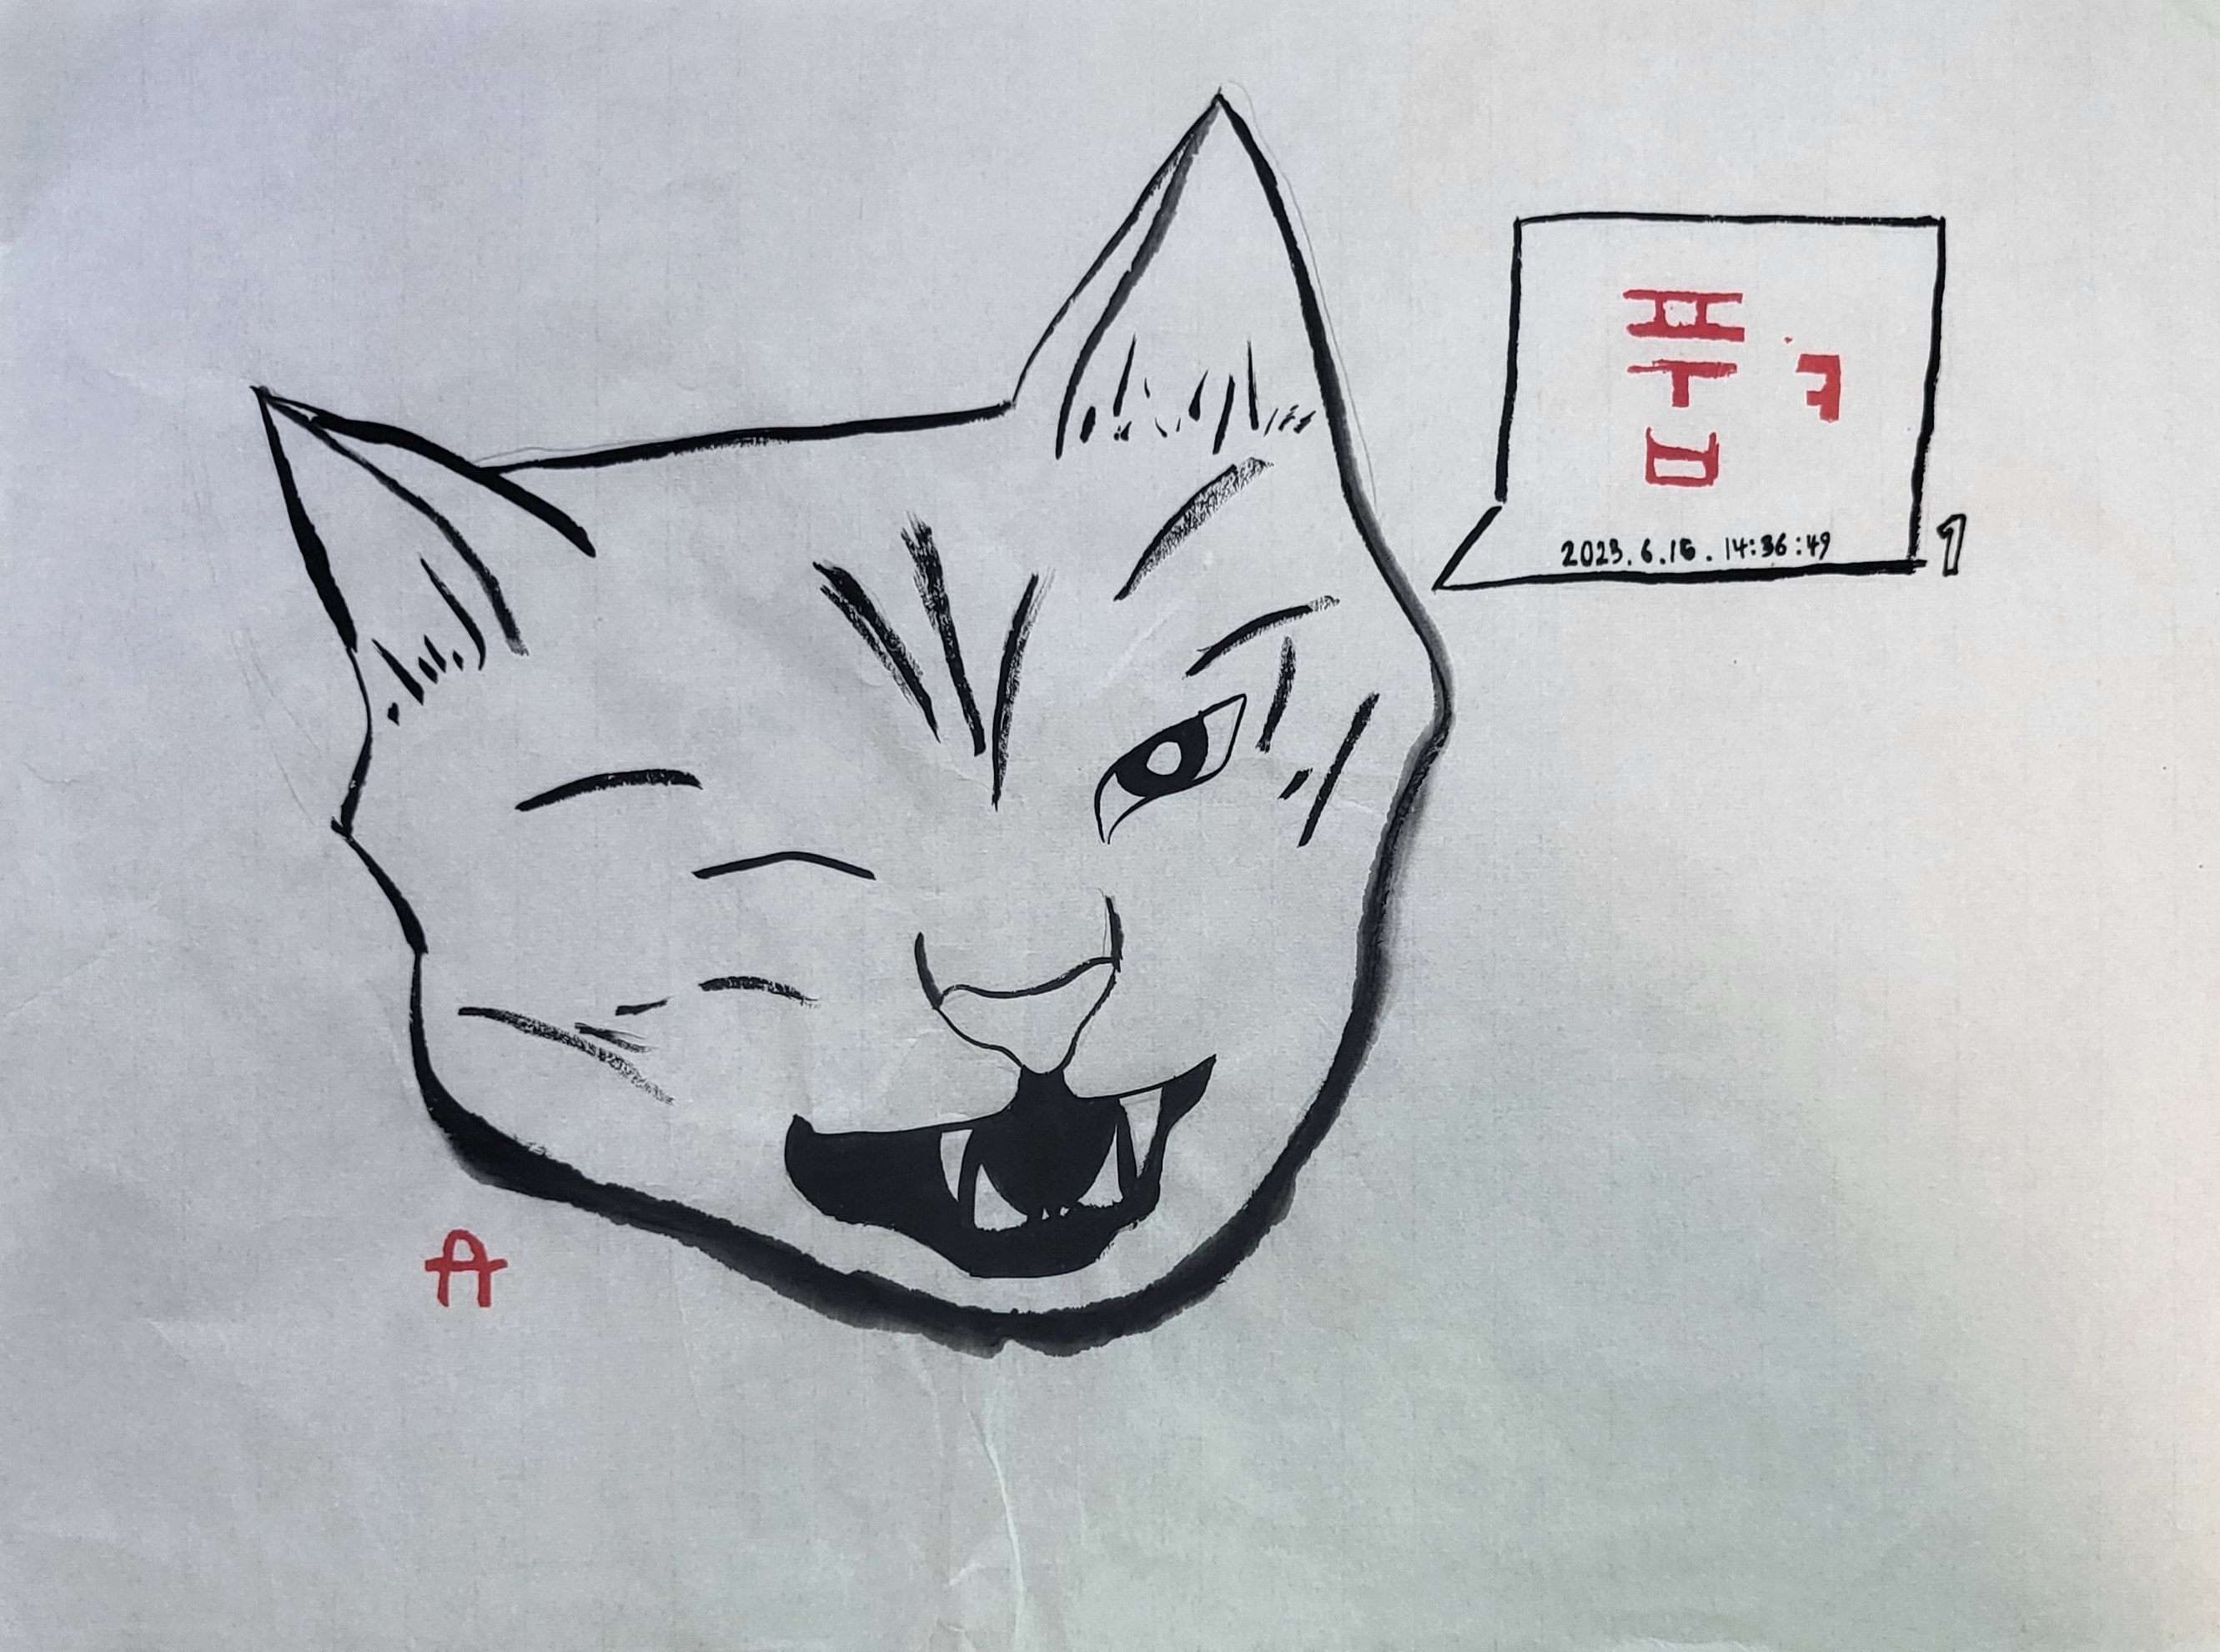 품 ㅋ
2023.6.16. 14:36:49
1
A